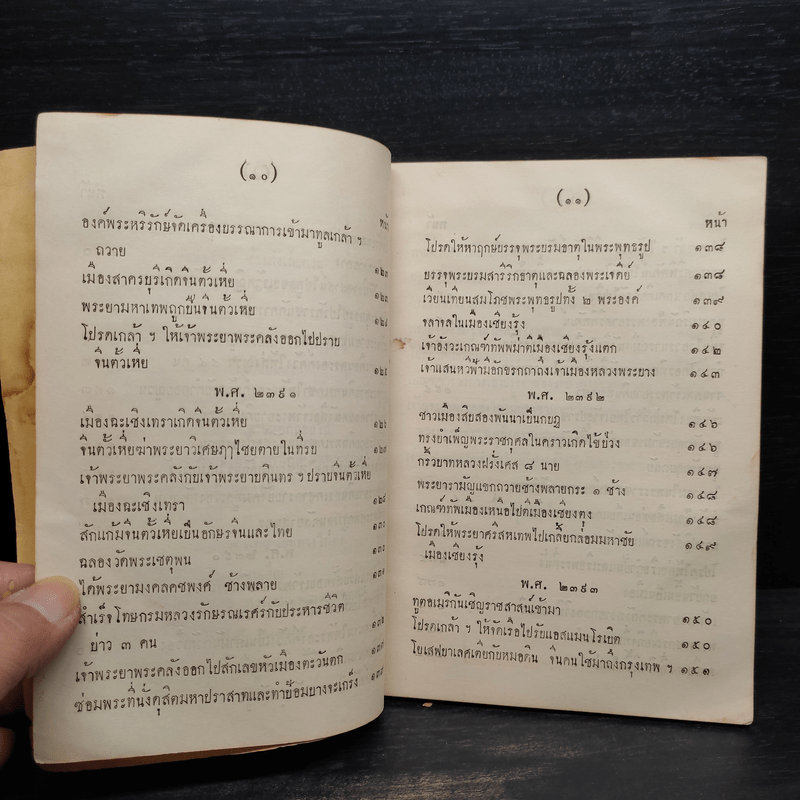 (๑๐)
หน้า
องค์พระหริรักษ์จัดเครื่องบรรณาการเข้ามาทูลเกล้า ฯ
ถวาย ๑๒๓
เมืองสาครบุรีเกิดจีนตั้วเหี่ย ๑๒๓
พระยามหาเทพถูกปืนจีนตั้วเหี่ย ๑๒๔
โปรดเกล้า ฯ ให้เจ้าพระยาพระคลังออกไปปราบ
จีนตั้วเหี่ย ๑๒๔
พ.ศ. ๒๓๙๑
เมืองฉะเชิงเทราเกิดจีนตั้วเหี่ย ๑๒๖
จีนตั้วเหี่ยฆ่าพระยาวิเศษฦๅไชยตายในที่รบ ๑๒๗
เจ้าพระยาพระคลังกับเจ้าพระยาบดินทร ฯ ปราบจีนตั้วเหี่ย
เมืองฉะเชิงเทรา ๑๒๘
สักแก้มจีนตั้วเหี่ยเป็นอักษรจีนและไทย ๑๓๐
ฉลองวัดพระเชตุพน ๑๓๐
ได้พระยามงคลคชพงศ์ ช้างพลาย
สำเร็จโทษกรมหลวงรักษรณเรศร์กับประหารชีวิต
บ่าว ๓ คน
เจ้าพระยาพระคลังออกไปสักเลขหัวเมืองตะวันตก
ซ่อมพระที่นั่งดุสิตมหาปราสาทและทำป้อมบางจะเกร็ง
(๑๑)
หน้า
โปรดให้หาฤกษ์บรรจุพระบรมธาตุในพระพุทธรูป ๑๓๘
บรรจุพระบรมสารีริกธาตุและฉลองพระเจดีย์ ๑๓๘
เวียนเทียนสมโภชพระพุทธรูปทั้ง ๒ พระองค์ ๑๓๙
จลาจลในเมืองเชียงรุ้ง ๑๔๐
เจ้าอังวะเกณฑ์ทัพพม่าตีเมืองเชียงรุ้งแตก ๑๔๒
เจ้าแสนหวีฟ้ามีอักษรถึงเจ้าเมืองหลวงพระบาง ๑๔๓
พ.ศ. ๒๓๙๒
ชาวเมืองสิบสองพันนาเป็นกบฏ ๑๔๖
ทรงบำเพ็ญพระราชกุศลในคราวเกิดไข้ป่วง ๑๔๖
กริ้วบาทหลวงฝรั่งเศส ๘ นาย ๑๔๗
พระยารามัญแขกถวายช้างพลายกระ ๑ ช้าง ๑๔๘
เกณฑ์ทัพเมืองเหนือไปตีเมืองเชียงตุง ๑๔๘
โปรดให้พระยาศรีสหเทพไปเกลี้ยกล่อมมหาชัย ๑๔๙
เมืองเชียงรุ้ง
พ.ศ. ๒๓๙๓
ทูตอเมริกันเชิญราชสาส์นเข้ามา ๑๕๐
โปรดเกล้า ฯ ให้จัดเรือไปรับแอสแมนโรเบิต ๑๕๐
โยเสฟบาเลศเตียกับหมอดิน จีนคนใช้มาถึงกรุงเทพ ฯ ๑๕๑